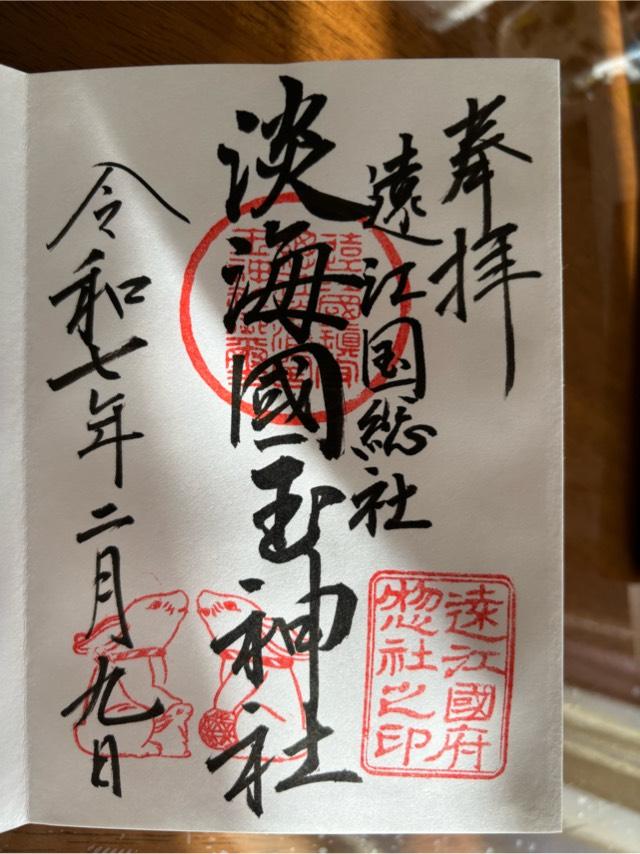 奉拝
遠江国総社
淡海國玉神社
令和七年二月九日
遠江國府
惣社之印